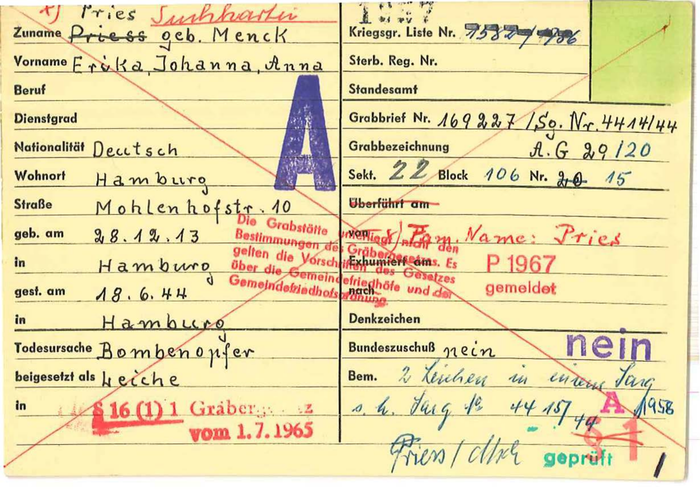 x) Pries Suchkartei
Zuname Priess geb. Menck
Vorname Erika, Johanna, Anna
Beruf
Dienstgrad
Nationalität Deutsch
Wohnort Hamburg
Straße Mohlenhofstr. 10
geb. am 28.12.13
in Hamburg
gest. am 18.6.44
in Hamburg
Todesursache Bombenopfer
beigesetzt als Leiche
in
§ 16 (1) 1 Gräber
vom 1.7.1965
A
Die Grabstätte unterliegt nicht den
Bestimmungen des Gräbergesetzes. Es
gelten die Vorschriften des Gesetzes
über die Gemeindefriedhöfe und der
Gemeindefriedhofsordnung.
Kriegsgr. Liste Nr. 1582/1986
Sterb. Reg. Nr.
Standesamt
Grabbrief Nr. 169227 /Sg. Nr. 4414/44
Grabbezeichnung A.G 29/20
Sekt. 22 Block 106 Nr. 20 15
Überführt am
von x) Fam. Name: Pries
Exhumiert am P 1967
nach gemeldet
Denkzeichen
nein
Bundeszuschuß nein
Bem. 2 Leichen in einem Sarg
s. h. Sarg No 4415/44 A 1958
§ 1
Priess / geprüft